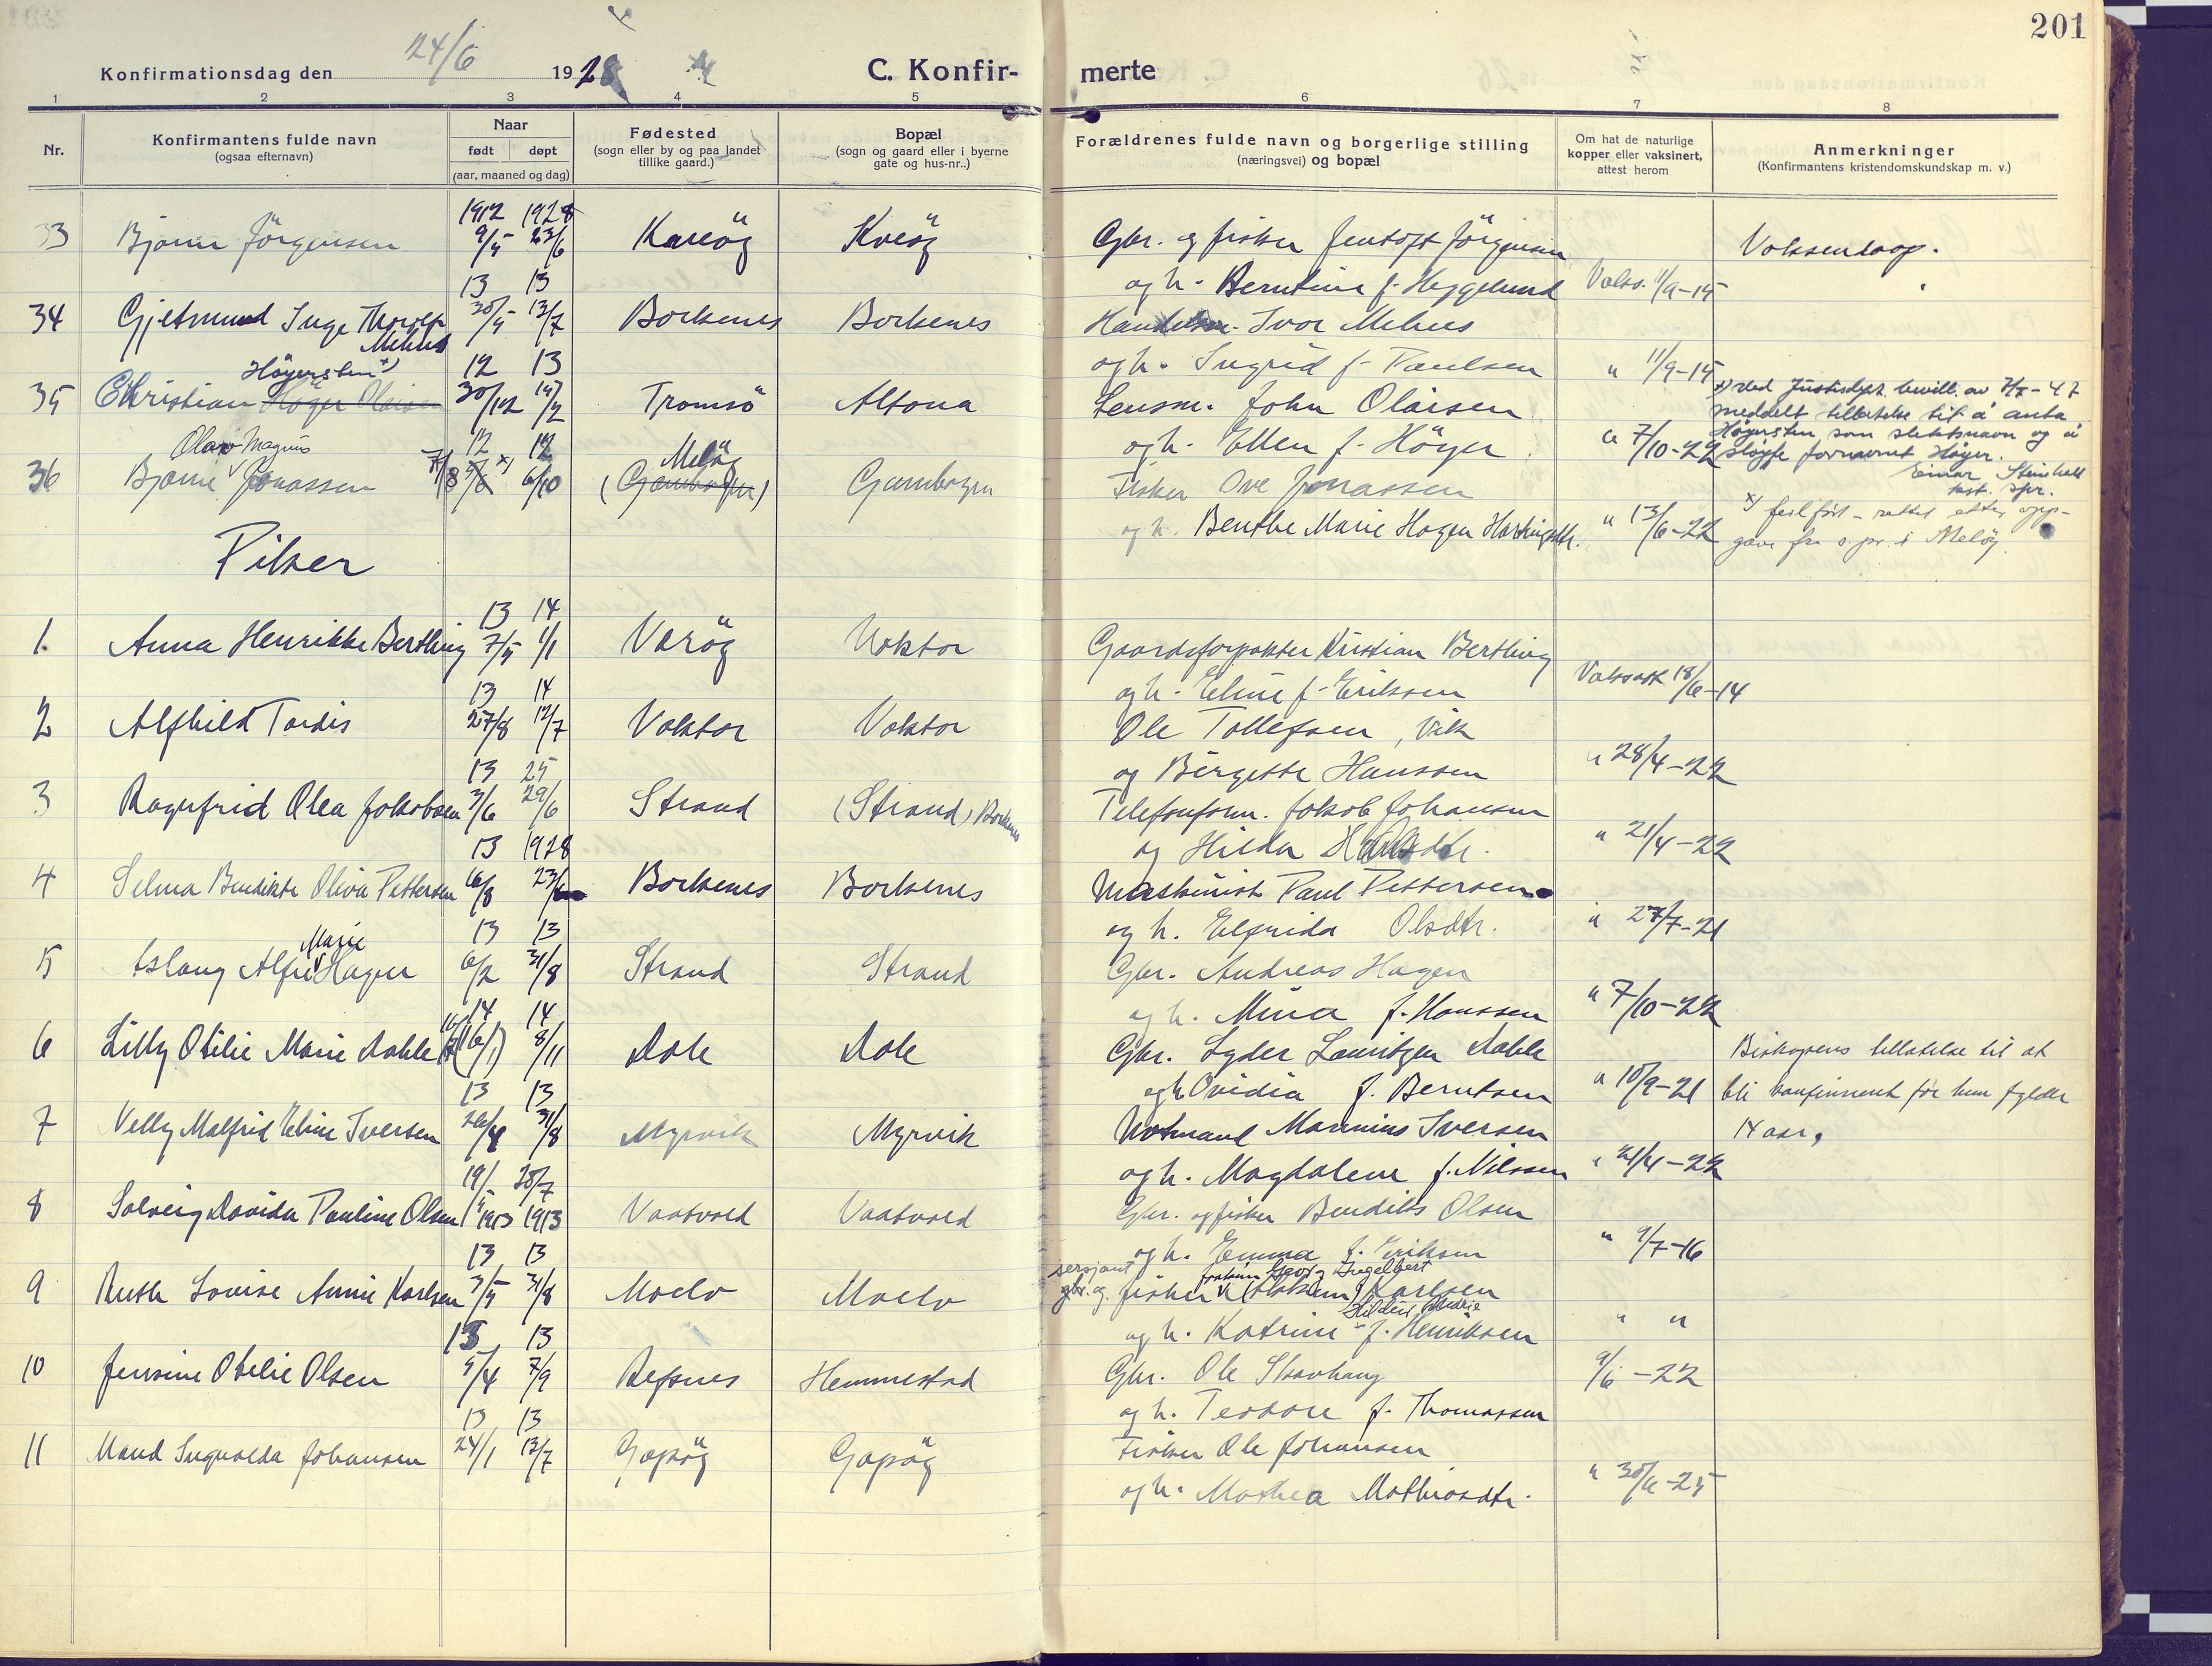 201
Konfirmationsdag den 24/6 1928
C. Konfirmerte
1 2 3 4 5 6 7 8
Nr.
Konfirmantens fulde navn
(ogsaa efternavn)
Naar
født døpt
(aar, maaned og dag)
Fødested
(sogn eller by og paa landet
tillike gaard.)
Bopæl
(sogn og gaard eller i byerne
gate og hus-nr..)
Forældrenes fulde navn og borgerlige stilling
(næringsvei) og bopæl
Om hat de naturlige
kopper eller vaksinert,
attest herom
Anmerkninger
(Konfirmantens kristendomskundskap m. v.)
1912 1928
33 Bjarne Jörgensen 9/5 23/6 Kveög Gbr. og fisker Jentoft Jörgensen Voksendaap.
og h. Berntine f. Heggelund Vaks. 11/9-15
13 13
34 Gjetmund Inge Thorolf Mehus 30/4 13/7 Borkenes Borkenes Handelsm. Ivar Mehus
og h. Ingrid f. Paulsen " 11/9-15
12 13
35 Christian Höyer Olaisen Höyersten x) 30/12 Tromsö Altona Lensm. John Olaisen
og h. Ellen f. Höyer " 7/10-22
x) ved Justisdpt. bevill. av 7/7-47
meddelt tillatelse til å anta
Höyersten som slektsnavn og å
sløyfe fornavnet Höyer.
Einar Steinkell
kst. spr.
12 12
36 Bjarne Olav Magnus Jonassen 7/8 x) 6/10 Melöy (Gambogen) Gambogen Fisker Ove Jonassen
og h. Benthe Marie Hagen Hartvigsdtr. " 13/6-22
x) feilført - rettet etter opp-
gave fra s.pr. i Meløy.
Piker
13 14
1. Anna Henrikke Bertling 7/5 1/1 Värög Voktor Gaardsforpakter Kristian Bertling
og h. Eline f. Eriksen Vaksatt 18/6-14
13 14
2 Alfhild Tordis 27/8 12/7 Voktor Voktor Ole Tollefsen, Vik
og Bergitte Hanssen " 28/4-22
13 25
3 Ragnfrid Olea Jakobsen 3/6 29/6 Strand (Strand) Borkenes Telefonform. Jakob Johansen
og Hilda " 21/4-22
13 1928
4 Selma Benedikte Oliva Pettersen 6/8 23/6 Borkenes Borkenes Maskinist Paul Pettersen
og h. Elfrida Olsdtr. " 27/7-21
13 13
5 Aslaug Alfri Marie Hagen 6/2 31/8 Strand Strand Gbr. Andreas Hagen
og h. Mina f. Hanssen " 7/10-22
14 14
6 Lilly Otilie Marie Dahle (16/1) 8/11 Dale Dale Gbr. Lyder Lauritzen Dahle
og h Ovidia f. Berntsen " 10/9-21
Biskopens tillatelse til at
bli konfirmert før hun fylder
14 aar.
13 13
7 Velly Malfrid Eline Iversen 31/8 Myrvik Myrvik Notmand Marinius Iversen
og h. Magdalene f. Nilssen " 21/4-22
8 Solveig Davida Pauline Olsen 19/5 1913 20/7 1913 Vaatvold Vaatvold Gbr. og fisker Bendiks Olsen
og h. Emma f. Eriksen " 9/7-16
13 13
9 Ruth Lovise Annie Karlsen 3/5 31/8 Moelv Moelv sersjant gbr. og fisker Joakim Georg Ingelbert Karlsen
og h. Katrine f. Henriksen " "
13 13
10 Jensine Otelie Olsen 5/4 7/9 Refsnes Hemmestad Gbr. Ole Skavhaug 9/6-22
og h. Teodore f. Thomassen
13 13
11 Maud Ingvalda Johansen 24/1 13/7 Gapög Gapög Fisker Ole Johansen
og h. Mathea Mathiasdtr. " 30/6-25